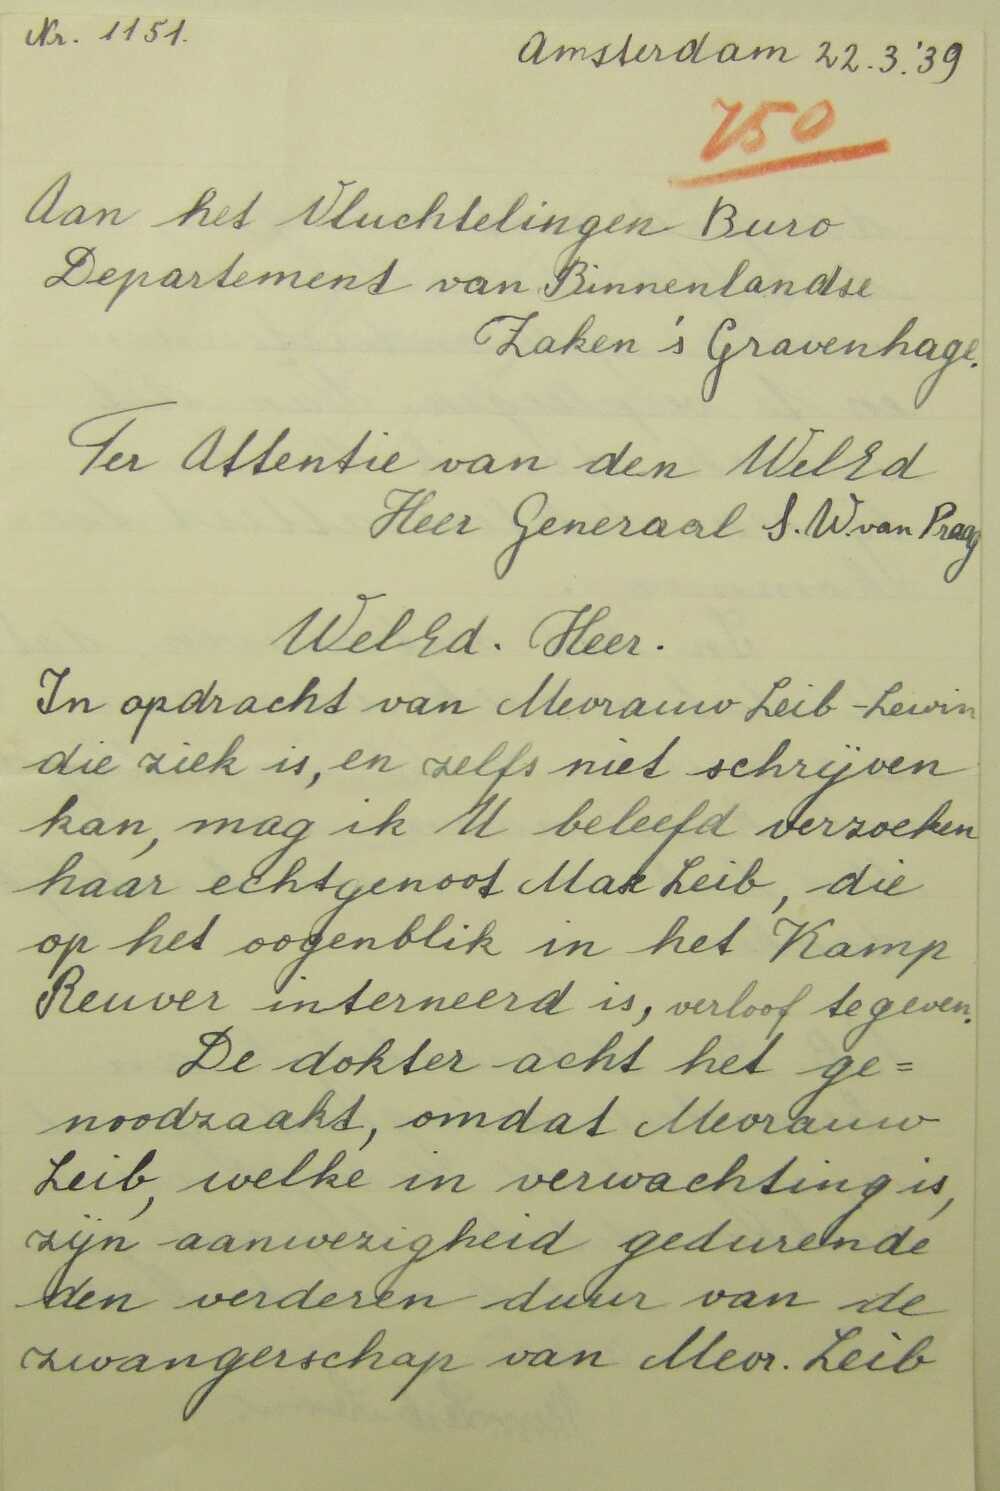 Nr. 1151.
Amsterdam 22.3.'39
750
Aan het Vluchtelingen Buro
Departement van Binnenlandse
Zaken 's Gravenhage.
Ter Attentie van den WelEd
Heer Generaal S. W. van Praag
WelEd. Heer.
In opdracht van Mevrauw Leib-Lewin
die ziek is, en zelfs niet schrijven
kan, mag ik U beleefd verzoeken
haar echtgenoot Max Leib, die
op het oogenblik in het Kamp
Reuver interneerd is, verloof te geven.
De dokter acht het ge=
noodzaakt, omdat Mevrauw
Leib, welke in verwachting is,
zijn aanwezigheid gedurende
den verderen duur van de
zwangerschap van Mevr. Leib